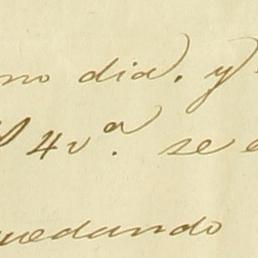 no dia. y
4va. se
quedando